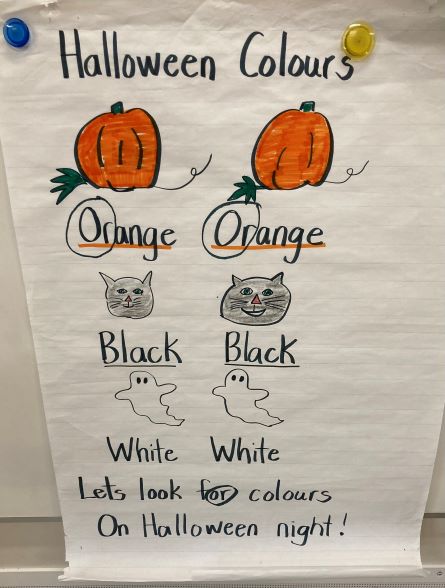 Halloween Colours
Orange Orange
Black Black
White White
Lets look for colours
On Halloween night!